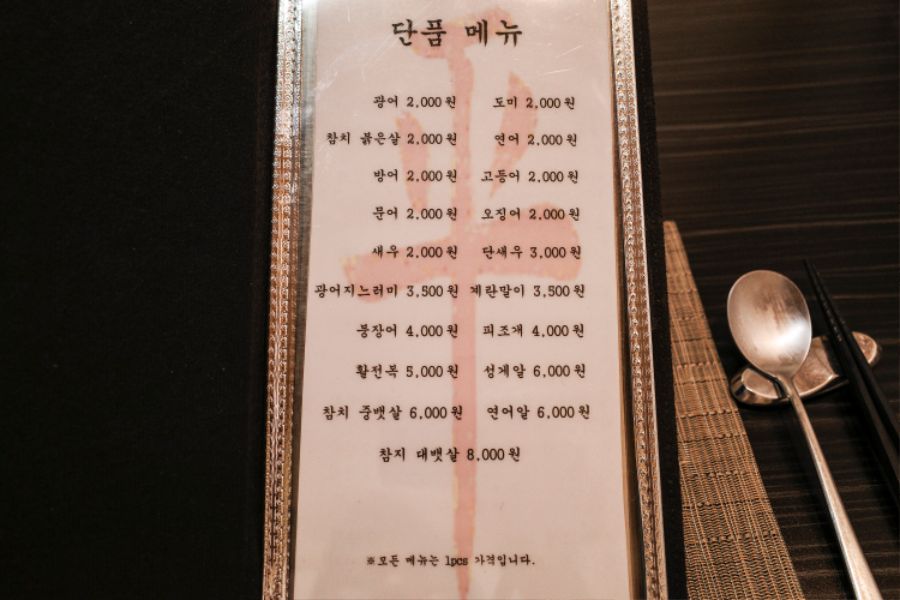 단품 메뉴
광어 2,000원 도미 2,000원
참치 붉은살 2,000원 연어 2,000원
방어 2,000원 고등어 2,000원
문어 2,000원 오징어 2,000원
새우 2,000원 단새우 3,000원
광어지느러미 3,500원 계란말이 3,500원
붕장어 4,000원 피조개 4,000원
활전복 5,000원 성게알 6,000원
참치 중뱃살 6,000원 연어알 6,000원
참지 대뱃살 8,000원
※모든 메뉴는 1pcs 가격입니다.